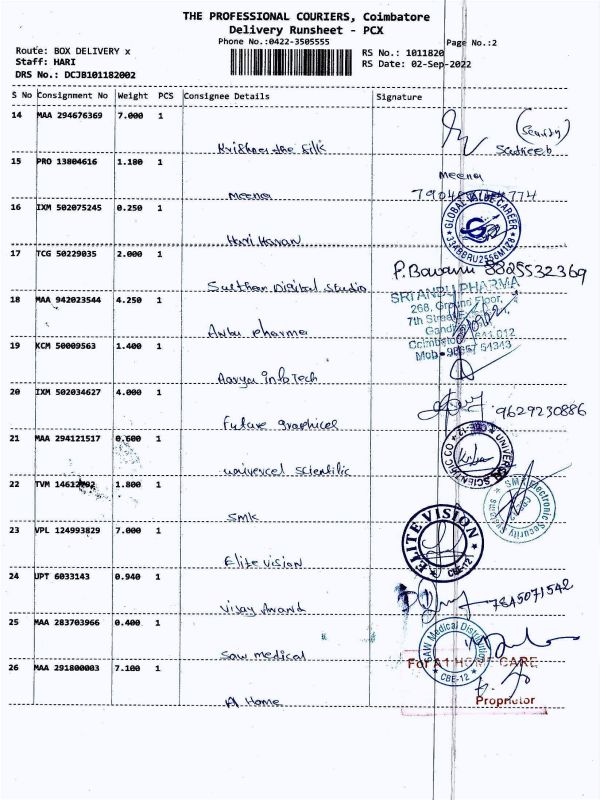 THE PROFESSIONAL COURIERS, Coimbatore
Delivery Runsheet - PCX
Phone No.:0422-3505555
Page No.:2
Route: BOX DELIVERY x
RS No.: 1011820
Staff: HARI
RS Date: 02-Sep-2022
DRS No.: DCJB101182002
S No Consignment No Weight PCS Consignee Details Signature
14 MAA 294676369 7.000 1
(Security)
15 PRO 13804616 1.180 1
Meena
Meena
16 IXM 502075245 0.250 1
GLOBAL VALUE CAREER
Hari Haran
17 TCG 50229035 2.000 1
P.Bawani 8825532369
Digital Studio
SRI ANBU PHARMA
268, Ground Floor,
18 MAA 942023544 4.250 1
7th Street
Anbu pharma
19 KCM 50009563 1.400 1
Aarya infoTech
20 IXM 502034627 4.000 1
9629230886
future graphices
21 MAA 294121517 0.600 1
UNIVERSAL SCIENTIFIC CO
univercel scientific
22 TVM 1.800 1
SMK Electronic Security
SMK
23 VPL 124993829 7.000 1
ELITE VISION
CBE-12
Elite vision
24 UPT 6033143 0.940 1
7845071542
Vijay Anand
25 MAA 283703966 0.400 1
SAW Medical
Saw medical
26 MAA 291800003 7.100 1
For A1 HOME CARE
CBE-12
Proprietor
A1 Home